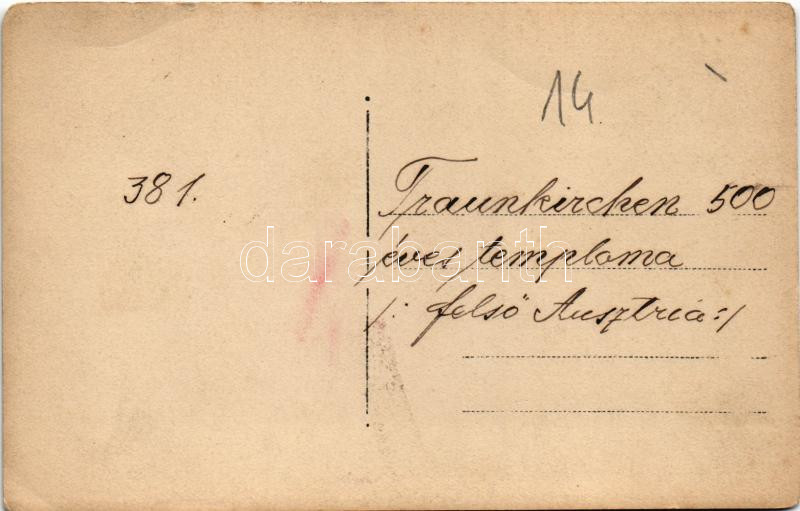 14
381.
Traunkirchen 500
éves temploma
/: felső Ausztria :/
darabanth